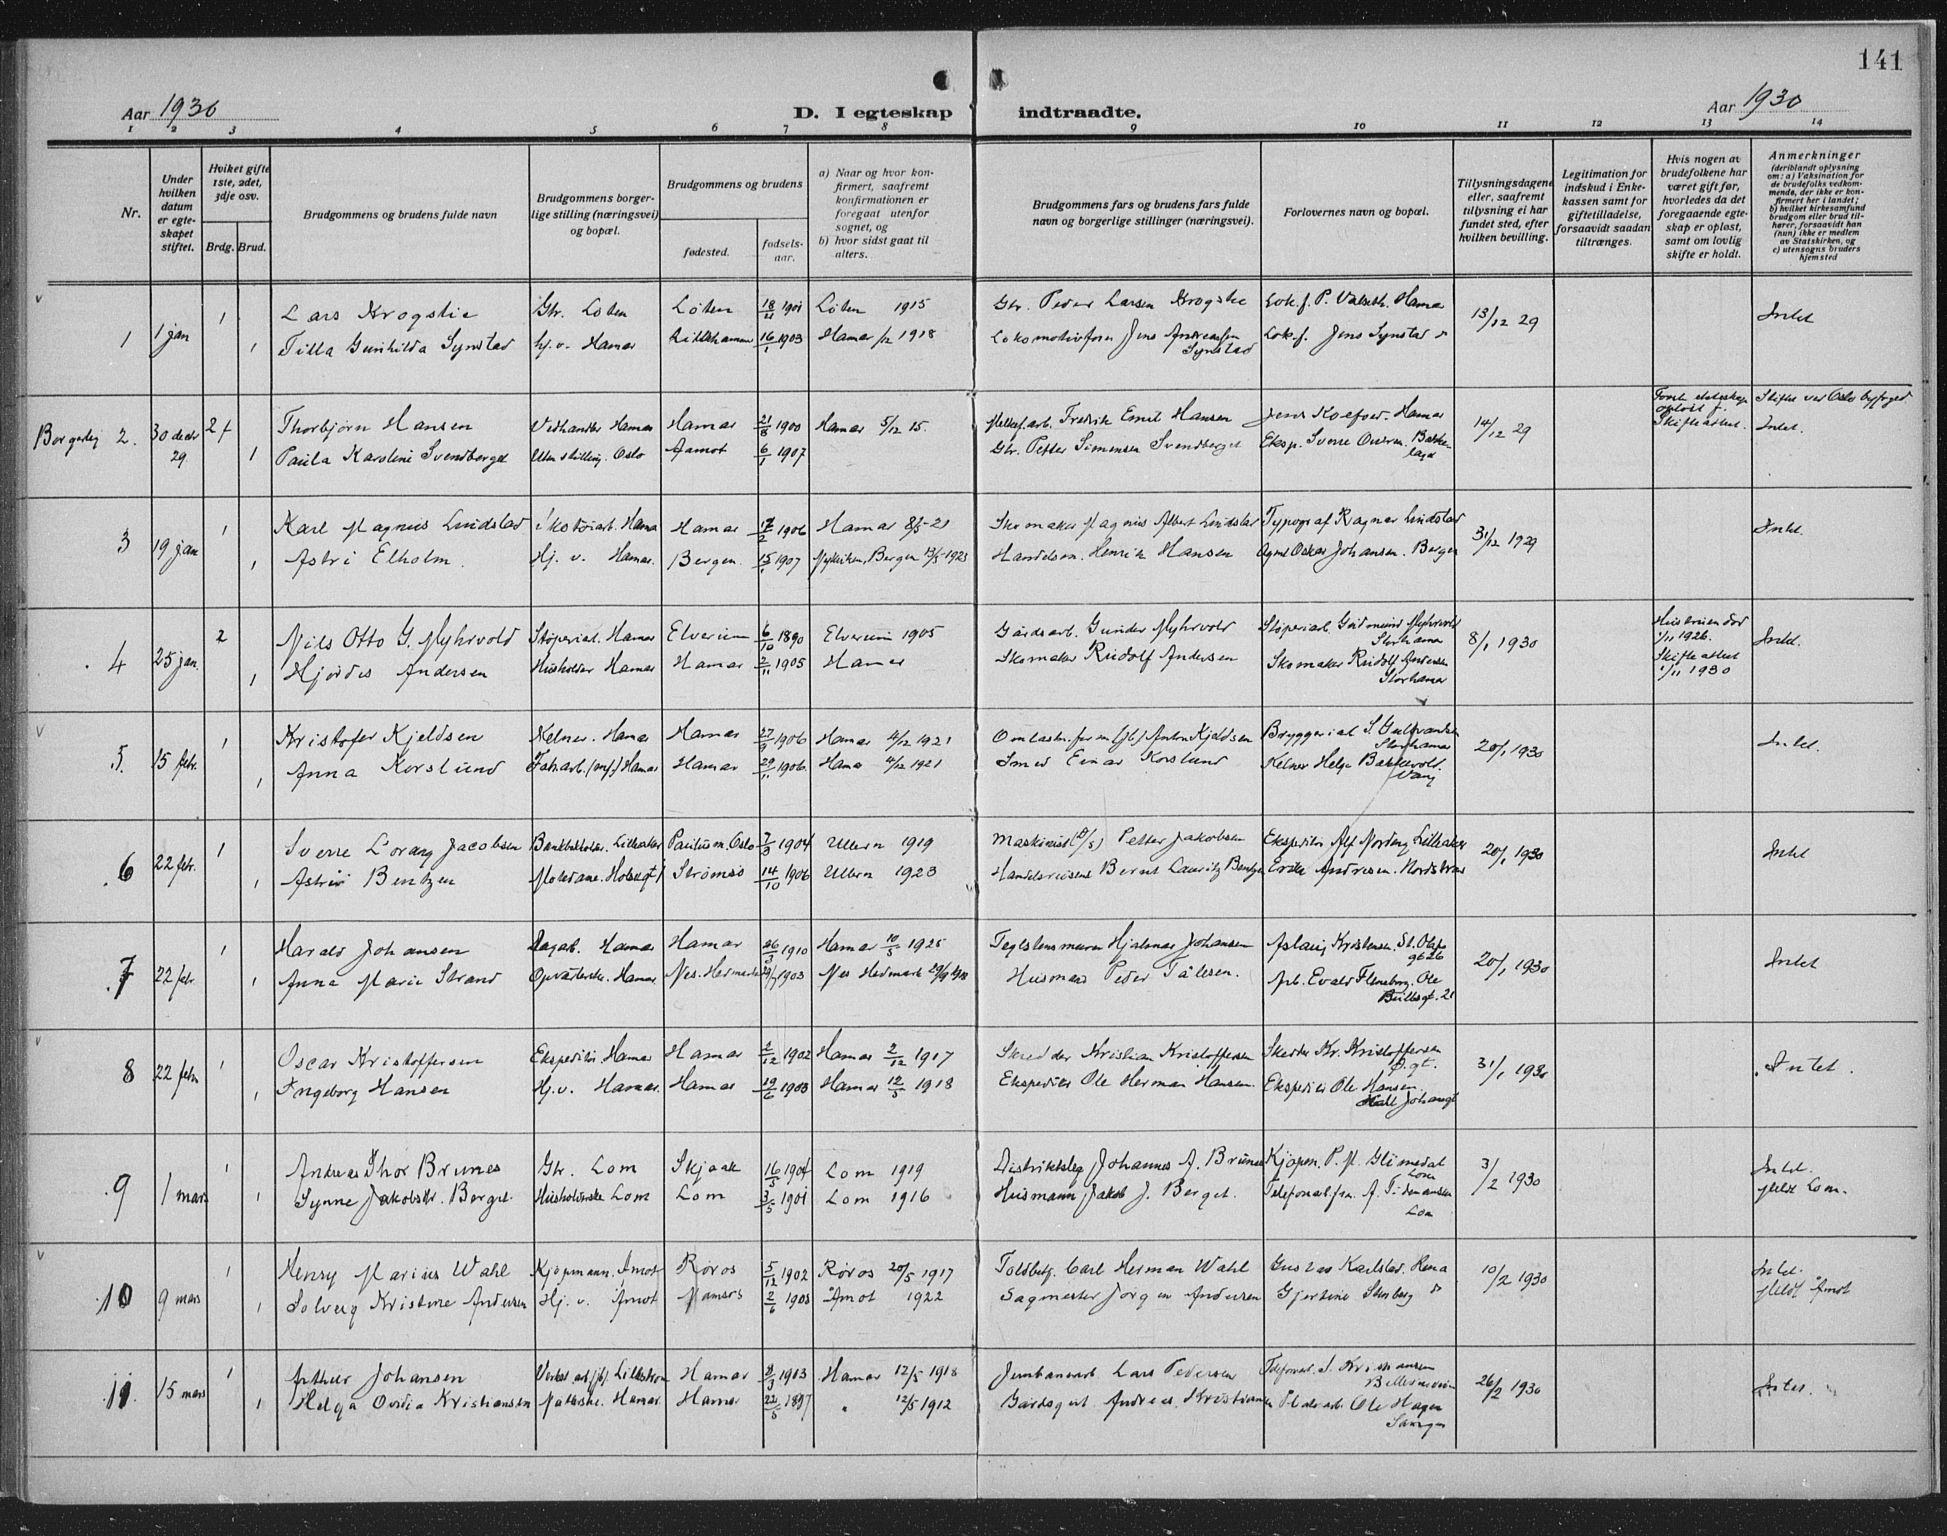 141
Aar 1930
D. I egteskap indtraadte.
Aar 1930
1 2 3 4 5 6 7 8 9 10 11 12 13 14
Nr.
Under hvilken datum er egteskapet stiftet.
Hviket gifte 1ste, 2det, 3dje osv.
Brdg. Brud.
Brudgommens og brudens fulde navn
Brudgommens borgerlige stilling (næringsvei) og bopæl.
Brudgommens og brudens
fødested.
fødselsaar.
a) Naar og hvor konfirmert, saafremt konfirmationen er foregaat utenfor sognet, og
b) hvor sidst gaat til alters.
Brudgommens fars og brudens fars fulde navn og borgerlige stillinger (næringsvei).
Forlovernes navn og bopæl.
Tillysningsdagene eller, saafremt tillysning ei har fundet sted, efter hvilken bevilling.
Legitimation for indskud i Enkekassen samt for giftetilladelse, forsaavidt saadan tiltrænges.
Hvis nogen av brudefolkene har været gift før, hvorledes da det foregaaende egteskap er opløst, samt om lovlig skifte er holdt.
Anmerkninger
(deriblandt oplysning om: a) Vaksination for de brudefolks vedkommende, der ikke er konfirmert her i landet; b) hvilket kirkesamfund brudgom eller brud tilhører, forsaavidt han (hun) ikke er medlem av Statskirken, og c) utensogns bruders hjemsted
1 1 jan 1 Lars Krogstie Gbr. Løten Løten 1901 Løten 1915 Gbr. Peder Larsen Krogstie Lok.f. P. Valseth. Hamar 13/12 29 Intet
1 Tilla Gunhilda Synstad Hj.v. Hamar Lillehammer 16/1 1903 Hamar /12 1918 Lokomotivfører Jens Andreassen Synstad Lok.f. Jens Synstad
Borgerlig 2. 30 decbr 29 2 Thorbjørn Hansen Vedhandler Hamar Hamar 21/8 1900 Hamar 5/12 15. Fredrik Emil Hansen Jens Koefoed. Hamar 14/12 29 Skifteattest Skifte ved Oslo byfoged Intet.
1 Paula Karoline Svendberget Uten stilling. Oslo Aamot 6/1 1907 Gbr. Petter Simensen Svendberget Eksp. Sverre
3 19 jan 1 Karl Magnus Lindstad Skotøiarb. Hamar Hamar 17/2 1906 Hamar 8/5-21 Skomaker Magnus Albert Lindstad Typograf Ragnar Lindstad 31/12 1929 Intet.
1 Astri Elholm Hj. v. Hamar. Bergen. 15/1 1907 Nykirken, Bergen 1923 Handelsm. Henrik Hansen Agent Oskar Johansen. Bergen
4 25 jan. 2 Nils Otto G. Myhrvold Støperiarb. Hamar Elverum 6/10 1890 Elverum 1905 Gårdsarb. Gunder Myhrvold Støperiarb. Gudmund Myhrvold Storhamar 8/1 1930 Hustruen død 1/11 1926. Skifteattest 1/11 1930 Intet.
1 Hjørdis Andersen Husholder Hamar Hamar 2/11 1905 Hamar Skomaker Rudolf Andersen Skomaker Rudolf Andersen Storhamar
5. 15 febr. 1 Kristofer Kjeldsen Kelner. Hamar Hamar 27/9 1906 Hamar 4/12 1921 Anton Kjeldsen Bryggeriarb. S. Storhamar 20/1 1930 Intet.
1 Anna Korslund Fabarb. Hamar Hamar 29/11 1906 Hamar 4/12 1921 Smed Einar Korslund Kelner Helge Bakkevolt. Vang
6 22 febr. 1 Sverre Lorang Jacobsen Lilleaker Paulus m. Oslo 7/3 1904 Ullern 1919 Maskinist Petter Jakobsen Ekspeditør Alf Norderg Lilleaker 20/1 1930 Intet
1 Astri Bentzen Strømsø 14/10 1906 Ullern 1923 Handelsreisende Bernt Lauritz Bentzen Erik Andresen. Nordstrand
7 22 febr 1 Harald Johansen Lagarb. Hamar Hamar 26/3 1910 Hamar 10/5 1925 Teglstensmurer Hjalmar Johansen Aslaug Kristensen. St. Olafs gt 26 20/1 1930 Intet
1 Anna Marie Strand Opvarterske. Hamar. Nes. Hedmark 1903 Nes Hedmark Husmand Peder Tålesen. Arb. Evald Flensborg. Ole Bullsgt. 21
8 22 febr 1 Oscar Kristoffersen Ekspeditør. Hamar Hamar 2/12 1902 Hamar 2/12 1917 Skredder Kristian Kristoffersen Skredder Kr. Kristoffersen 31/1 1930 Intet.
1 Ingeborg Hansen Hj.v. Hamar. Hamar 19/6 1903 Hamar 12/5 1918 Ekspeditør Ole Herman Hansen. Ekspeditør Ole Hansen.
9 1 mars 1 Andreas Thor Brunes Gbr. Lom Skjaak 16/5 1904 Lom 1919 Distriktslæg Johannes A. Brunes Kjøpm. P. M. Glimsdal Lom 3/2 1930 Intet. fleldt Lom.
1 Synne Jakobsdtr. Berget Husholderske Lom Lom 3/5 1901 Lom 1916 Husmann Jakob J. Berget. A. Tidemansen Lom
10 9 mars 1 Henry Marius Wahl Kjøpmann. Åmot Røros 5/12 1902 Røros 20/5 1917 Toldbetj. Carl Herman Wahl Gustav Karlstad. Rena 10/2 1930 Intet. fleldt Åmot
1 Solveig Kristine Andersen Hj. v. Åmot Namsos 2/6 1903 Åmot 1922 Sagmester Jørgen Andersen Gjertine Stenberg
11. 15 mars 1 Arthur Johansen Lillestrøm Hamar 8/3 1903 Hamar 12/5 1918 Jernbanearb Lars Pedersen J. Kristiansen 26/2 1930 Intet.
1 Helga Ovidia Kristiansen Hamar. Hamar 22/5 1897 " 12/5 1912 Gårdsgut. Andreas Kristiansen Ole Hagen